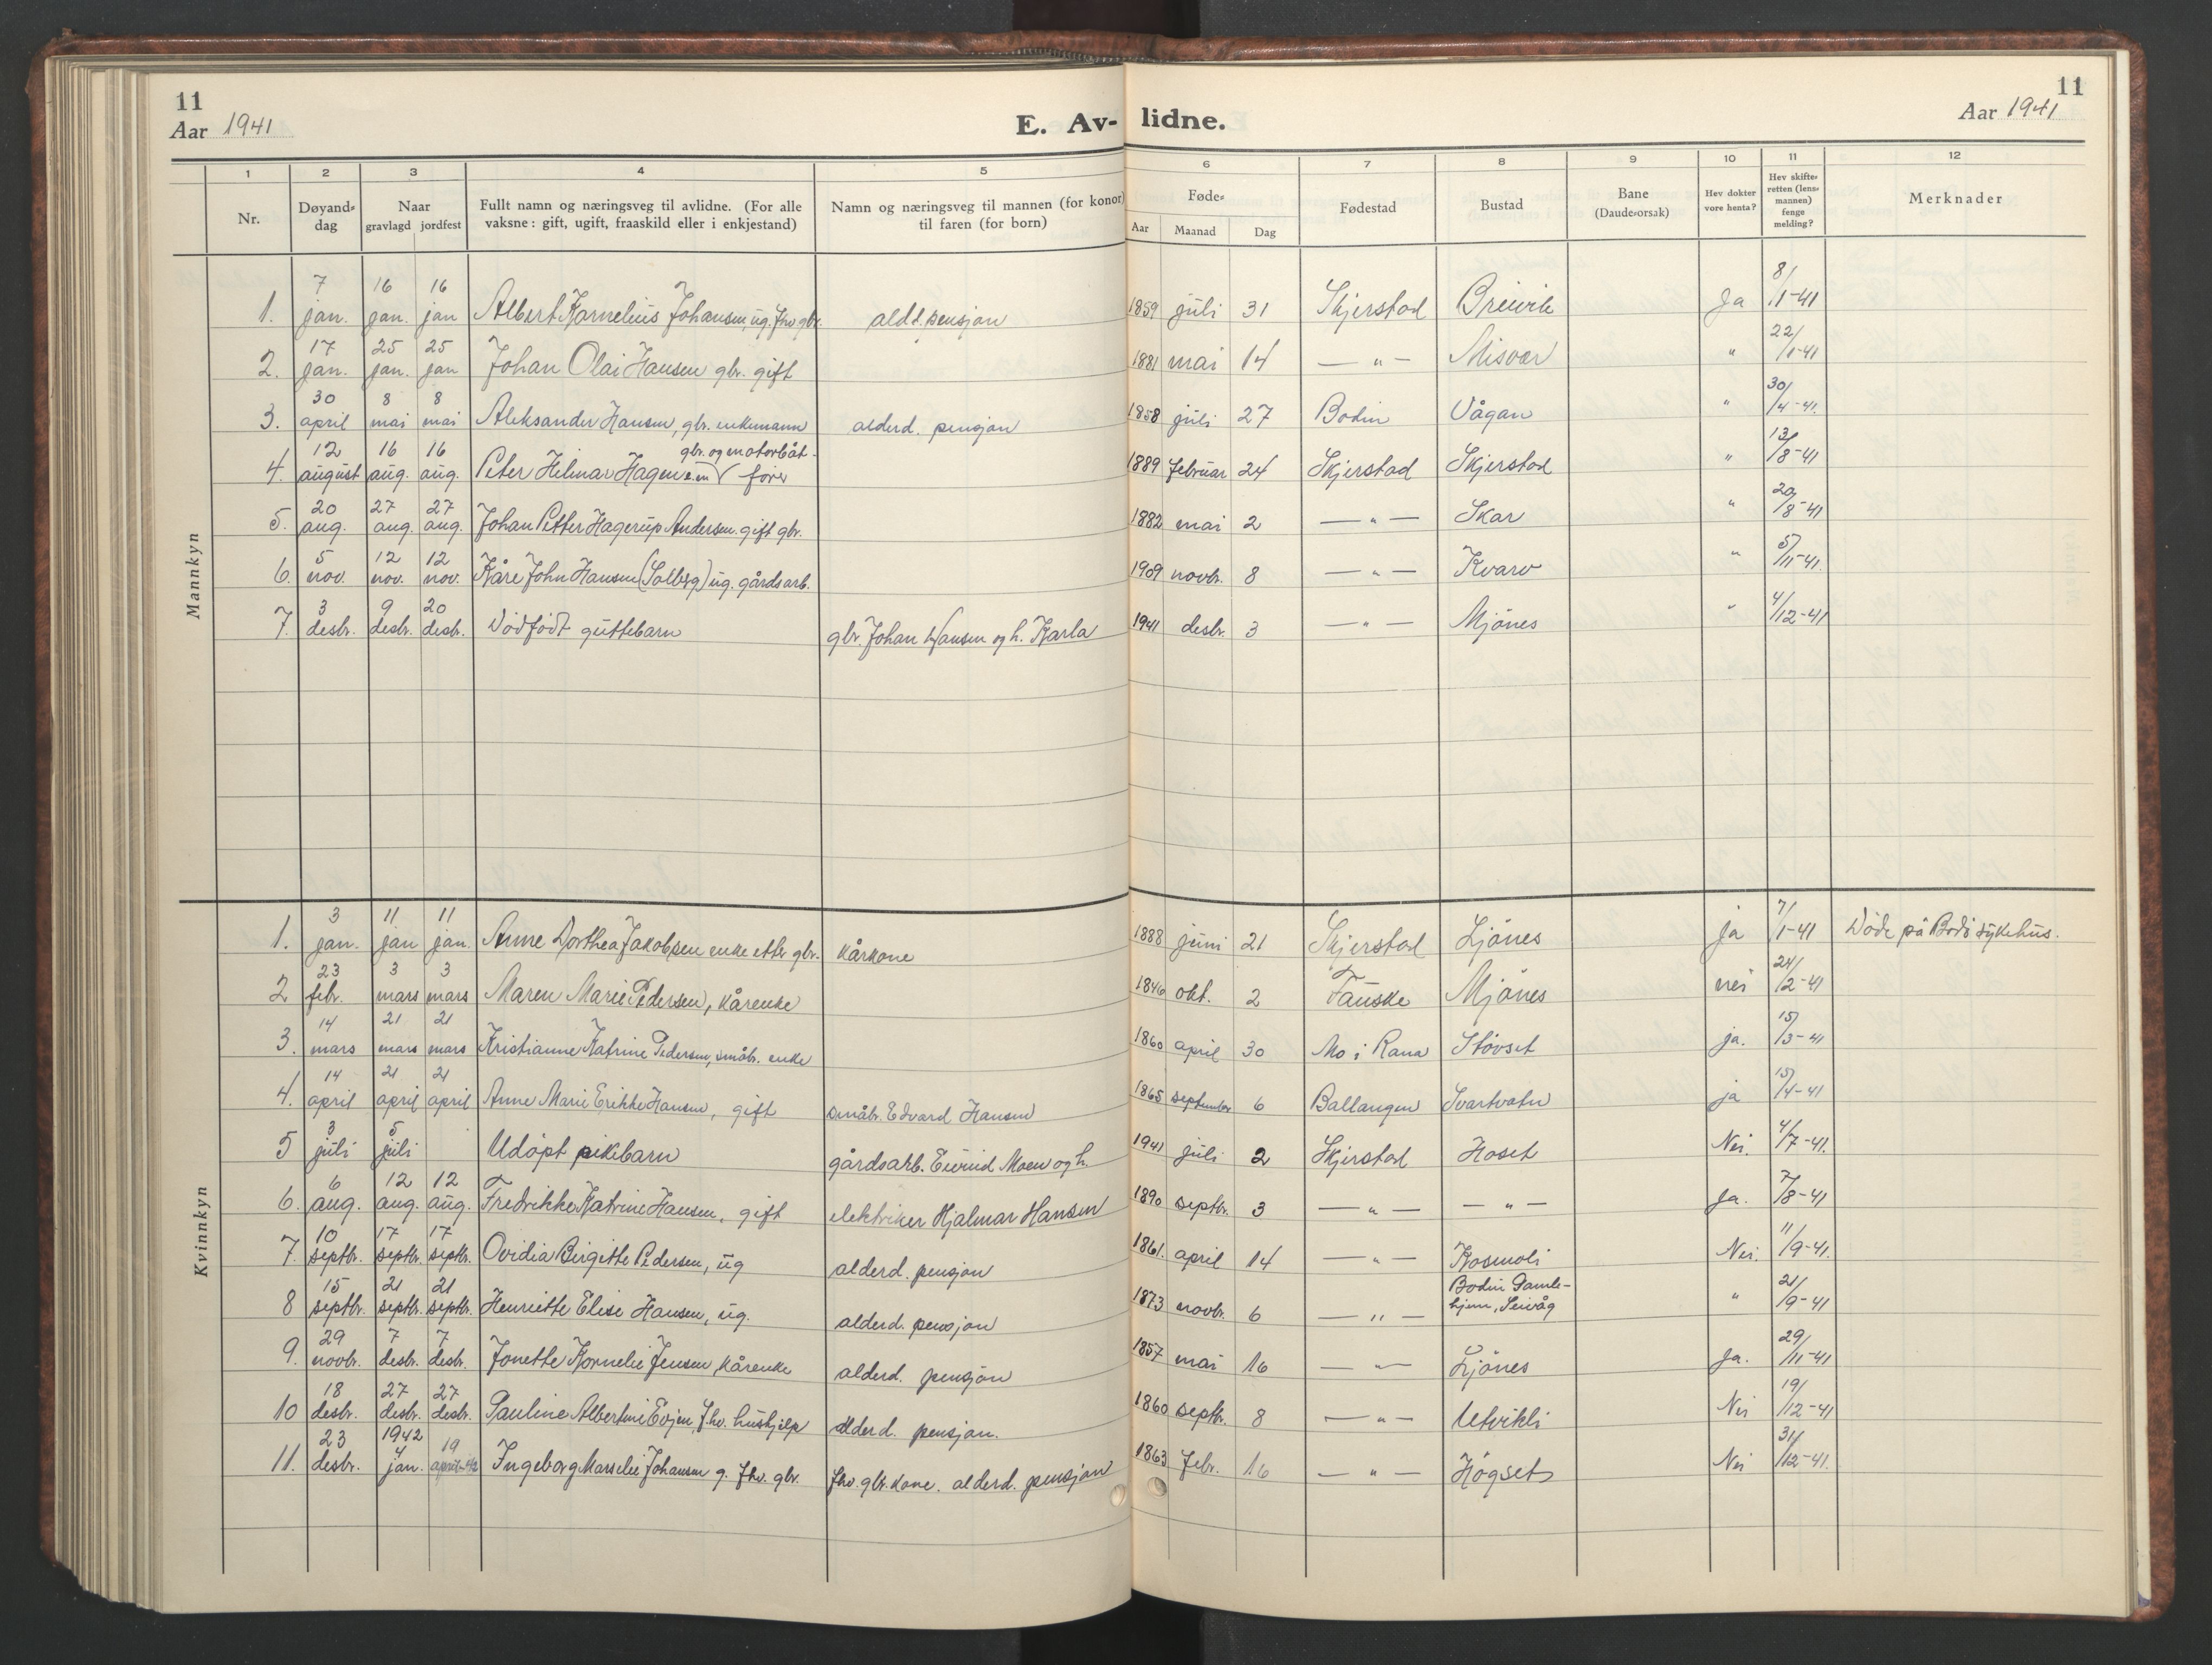 11
Aar 1941
E. Av-lidne.
11
Aar 1941
1 2 3 4 5 6 7 8 9 10 11 12
Nr.
Døyand-dag
Naar
gravlagd jordfest
Fullt namn og næringsveg til avlidne. (For alle
vaksne: gift, ugift, fraaskild eller i enkjestand)
Namn og næringsveg til mannen (for konor)
til faren (for born)
Føde-
Aar Maanad Dag
Fødestad
Bustad
Bane
(Daude-orsak)
Hev dokter
vore henta?
Hev skifte-
retten (lens-
mannen)
fenge
melding?
Merknader
Mannkyn
1. 7 jan. 16 jan. 16 jan Albert Kornelius Johansen, ug. fhv. gbr. ald.d. pensjon 1859 juli 31 Skjerstad Breivik Ja 8/1-41
2. 17 jan. 25 jan. 25 jan Johan Olai Hansen gbr. gift 1881 mai 14 — " — Misvær " 22/1-41
3. 30 april 8 mai 8 mai Aleksander Hansen, gbr. enkemann alderd. pensjon 1858 juli 27 Bodin Vågan " 30/4-41.
4. 12 august 16 aug. 16 aug. Peter Hilmar Hagen e.m. gbr. og motorbåt-fører 1889 februar 24 Skjerstad Skjerstad " 13/8-41
5. 20 aug. 27 aug. 27 aug. Johan Petter Hagerup Andersen. gift gbr. 1882 mai 2 — " — Skar " 20/8-41
6. 5 nov. 12 nov. 12 nov. Kåre John Hansen (Solberg) ug. gårdsarb. 1909 novbr. 8 — " — Kvarv " 5/11-41.
7. 3 desbr. 9 desbr. 20 desbr. Dødfødt guttebarn gbr. Johan Hansen og h. Karla 1941 desbr. 3 — " — Mjönes " 4/12-41
Kvinnkyn
1. 3 jan. 11 jan 11 jan. Anne Dorthea Jakobsen enke etter gbr. kårkone 1888 juni 21 Skjerstad Ljönes ja 7/1-41 Döde på Bodö sykehus.
2 23 febr. 3 mars 3 mars Maren Marie Pedersen, kårenke 1846 okt. 2 Fauske Mjönes nei 24/2-41
3. 14 mars 21 mars 21 mars Kristianne Katrine Pedersen, småbr. enke 1860 april 30 Mo i Rana Stövset ja. 15/3-41
4. 14 april 21 april 21 april Anne Marie Erikke Hansen, gift småbr. Edvard Hansen 1865 september 6 Ballangen Svartvatn ja 15/4-41
5 3 juli 5 juli Udöpt pikebarn gårdsarb. Eivind Moen og h. 1941 juli 2 Skjerstad Hoset Nei. 4/7-41.
6. 6 aug. 12 aug. 12 aug. Fredrikke Katrine Hansen, gift elektriker Hjalmar Hansen 1890 septbr. 3 — " — — " — Ja. 7/8-41
7. 10 septbr. 17 septbr. 17 septbr. Ovidia Birgitte Pedersen, ug alderd. pensjon 1861. april 14 — " — Kosmoli Nei. 11/9-41.
8 15 septbr. 21 septbr. 21 septbr. Henriette Elise Hansen, ug. alderd. pensjon 1873 novbr. 6 — " — Bodin Gamle-hjem, Seivåg " 21/9-41
9. 29 novbr. 7 desbr. 7 desbr. Jonette Kornelie Jensen, kårenke alderd. pensjon 1857 mai 16 — " — Ljönes Ja. 29/11-41
10 18 desbr. 27 desbr. 27 desbr. Pauline Albertine Evjen, fhv. hushjelp alderd. pensjon. 1860 septbr. 8 — " — Utvikli Nei 19/12-41
11. 23 desbr. 1942 4 jan. 19 april-42 Ingeborg Marselie Johansen g. fhv. gbr. fhv. gbr. kone. alderd. pensjon 1863 febr. 16 — " — Högset Nei 31/12-41.